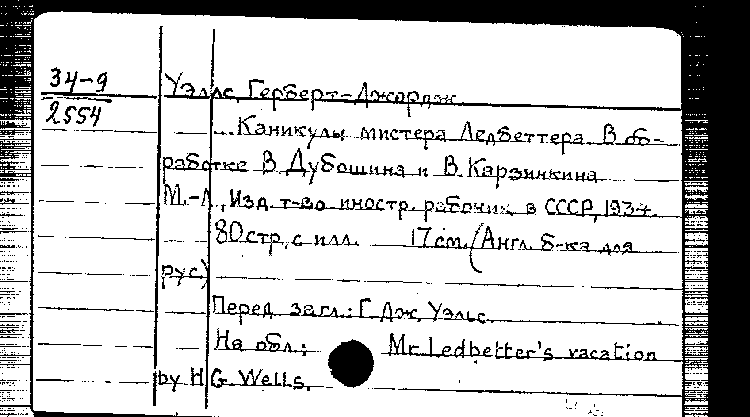 34-9
2554
Уэллс, Герберт-Джордж.
...Каникулы мистера Ледбеттера. В об-
работке В. Дубошина и В. Карзинкина.
М.-Л., Изд. т-во иностр. рабочих в СССР, 1934.
80 стр, с илл. 17 см. (Англ. б-ка для
рус.)
Перед загл.: Г. Дж. Уэльс.
На обл.: Mr. Ledbetter's vacation
by H. G. Wells.